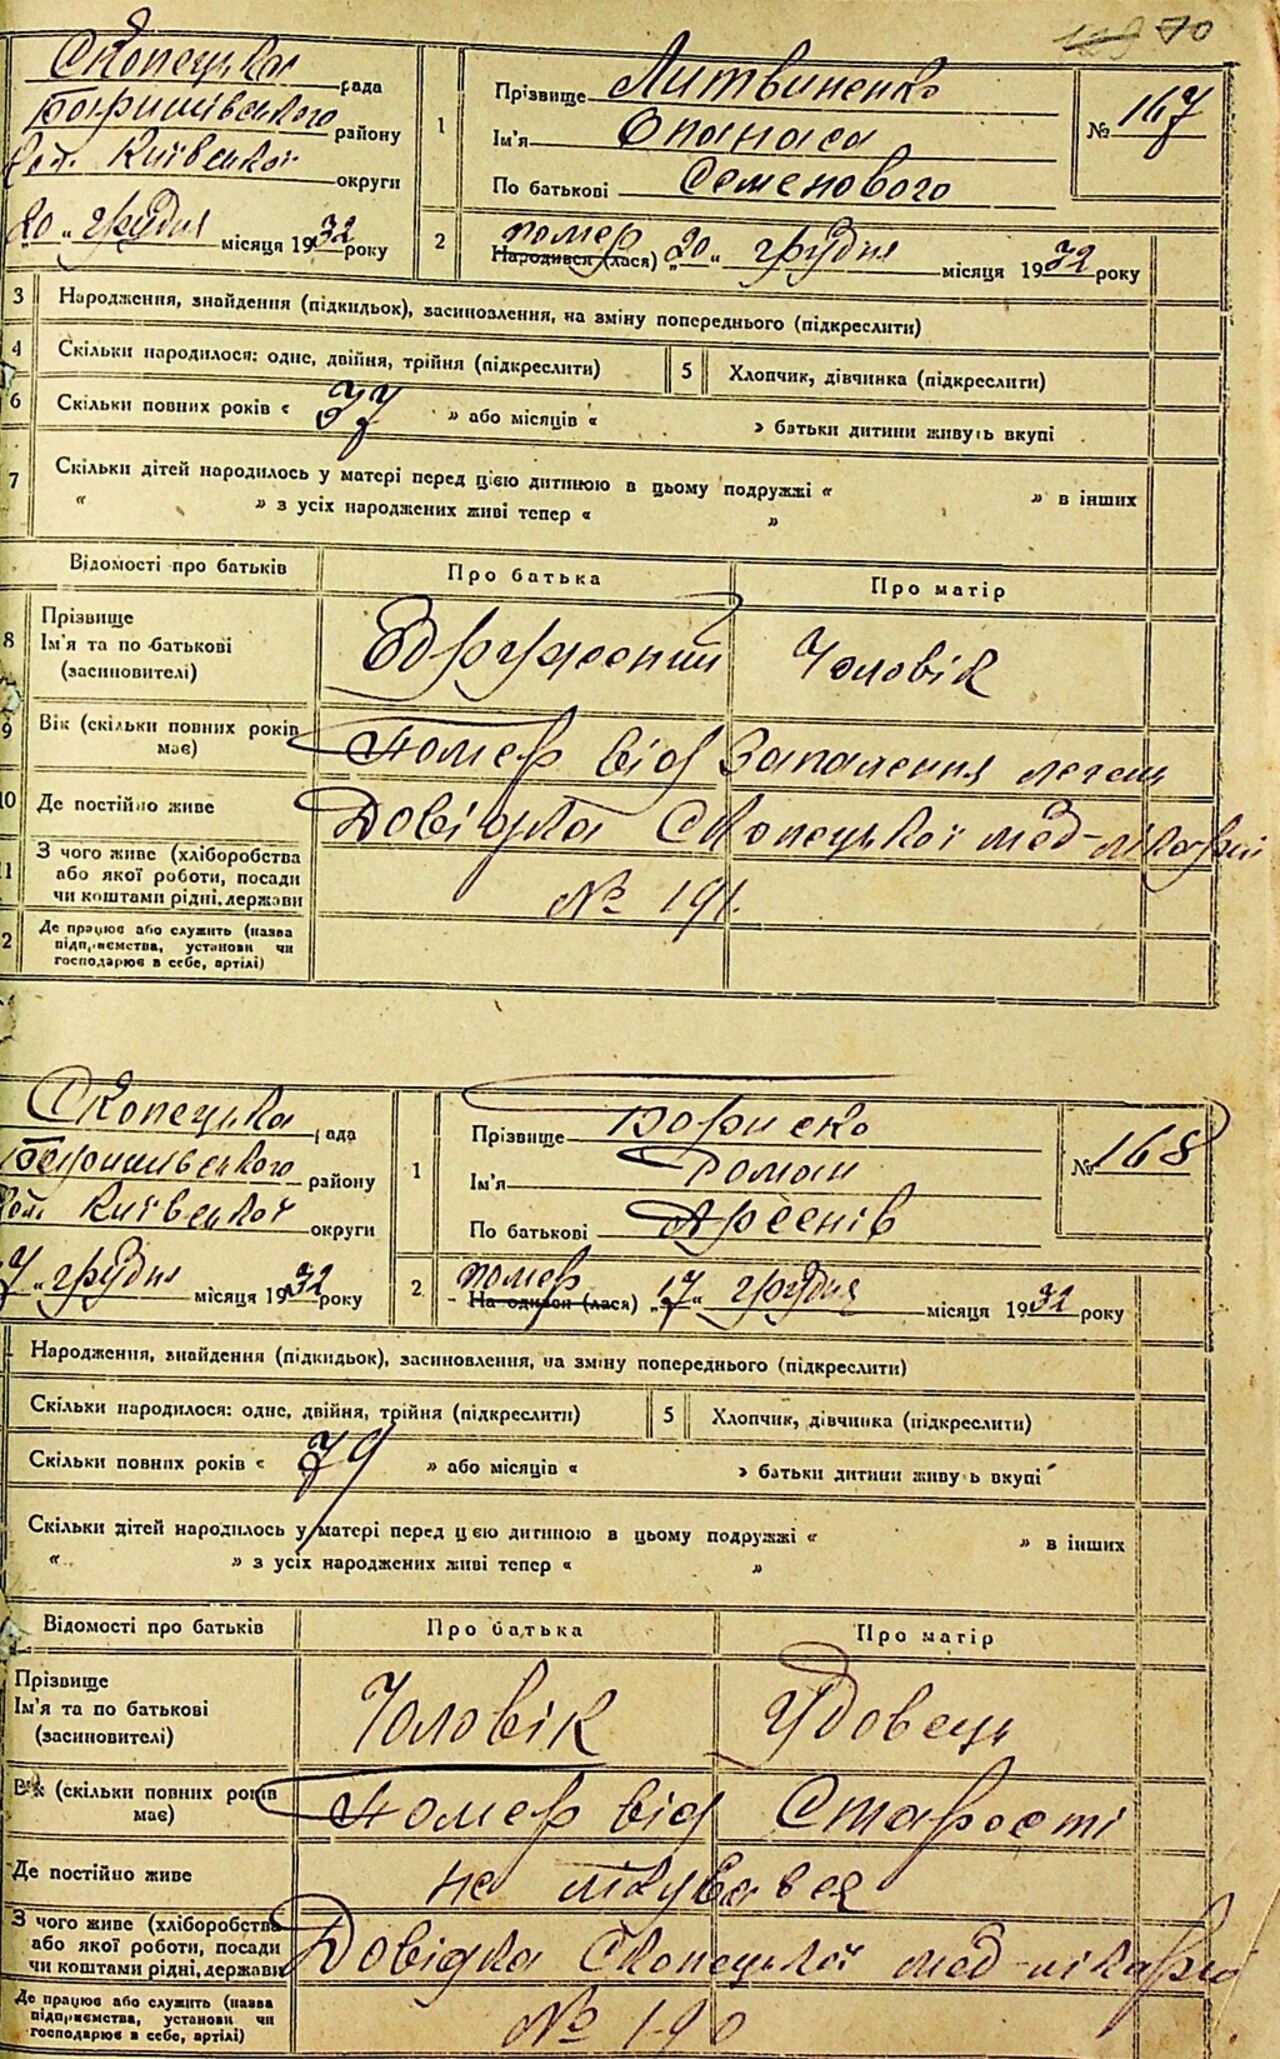 70
Скопецька рада
Баришівського району
Обл. Київської округи
20 „ грудня місяця 1932 року
1
Прізвище Литвиненко
Ім'я Опанаса
По батькові Семенового
№ 167
2
помер
Народився (лася) „20“ грудня місяця 1932 року
3 Народження, знайдення (підкидьок), засиновлення, на зміну попереднього (підкреслити)
4 Скільки народилося: одне, двійня, трійня (підкреслити) 5 Хлопчик, дівчинка (підкреслити)
6 Скільки повних років « 37 » або місяців « » батьки дитини живуть вкупі
7 Скільки дітей народилось у матері перед цією дитиною в цьому подружжі « » в інших
« » з усіх народжених живі тепер « »
Відомості про батьків Про батька Про матір
8 Прізвище
Ім'я та по батькові
(засиновителі)
Одружений Чоловік
9 Вік (скільки повних років
має)
Помер від Запалення легень
10 Де постійно живе
Довідка Скопецької мед-лікарні
11 З чого живе (хліборобства
або якої роботи, посади
чи коштами рідні, держави
№ 191.
2 Де працює або служить (назва
підприємства, установи чи
господарює в себе, артілі)
Скопецька рада
Баришівського району
Обл. Київської округи
7 „ грудня місяця 1932 року
1
Прізвище Бориско
Ім'я Роман
По батькові Арсенів
№ 168
2
помер
Народився (лася) „17“ грудня місяця 1932 року
Народження, знайдення (підкидьок), засиновлення, на зміну попереднього (підкреслити)
Скільки народилося: одне, двійня, трійня (підкреслити) 5 Хлопчик, дівчинка (підкреслити)
Скільки повних років « 79 » або місяців « » батьки дитини живуть вкупі
Скільки дітей народилось у матері перед цією дитиною в цьому подружжі « » в інших
« » з усіх народжених живі тепер « »
Відомості про батьків Про батька Про матір
Прізвище
Ім'я та по батькові
(засиновителі)
Чоловік Удовець
Вік (скільки повних років
має)
Помер від Старости
Де постійно живе
не лікувався
З чого живе (хліборобства
або якої роботи, посади
чи коштами рідні, держави
Довідка Скопецької мед-лікарні
Де працює або служить (назва
підприємства, установи чи
господарює в себе, артілі)
№ 190